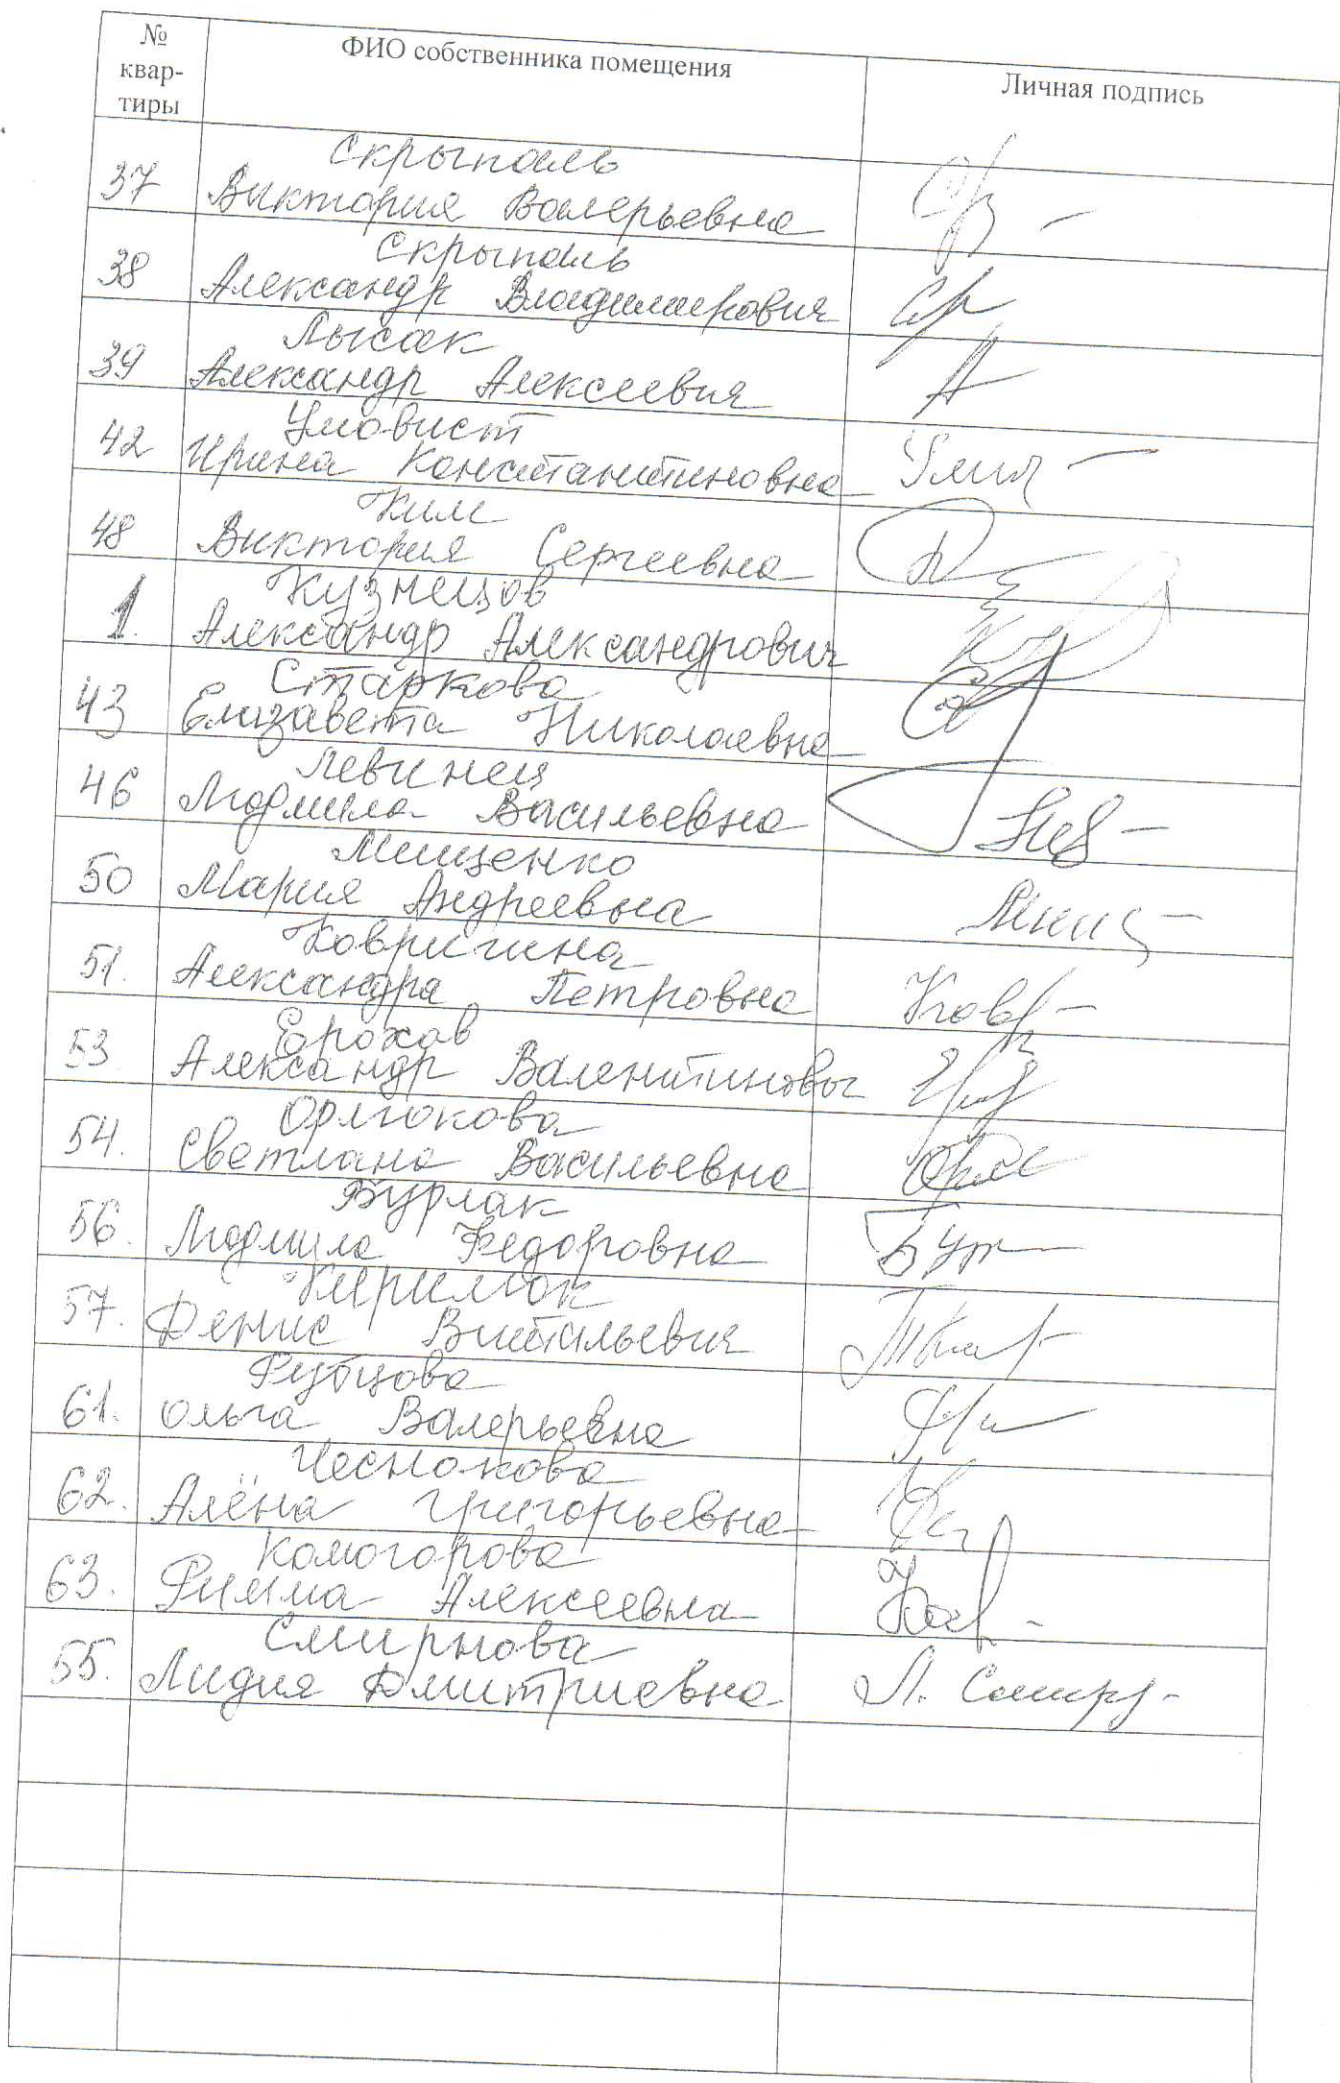 № квар-
тиры
ФИО собственника помещения
Личная подпись
Скрыпаль
37 Виктория Валерьевна
Скрыпаль
38 Александр Владимирович
Лысак
39 Александр Алексеевич
Умовист
42 Ирина Константиновна
Ким
48 Виктория Сергеевна
Кузнецов
1. Александр Александрович
Старкова
43 Елизавета Николаевна
Левинец
46 Людмила Васильевна
Мищенко
50 Мария Андреевна
Ковригина
51. Александра Петровна
Ерохов
53 Александр Валентинович
Орлюкова
54. Светлана Васильевна
Бурлак
56. Людмила Федоровна
Кирилюк
57. Денис Витальевич
Рубцова
61. Ольга Валерьевна
Чеснокова
62. Алёна Григорьевна
Комогорова
63. Римма Алексеевна
Смирнова
55. Лидия Дмитриевна Л. Смирн